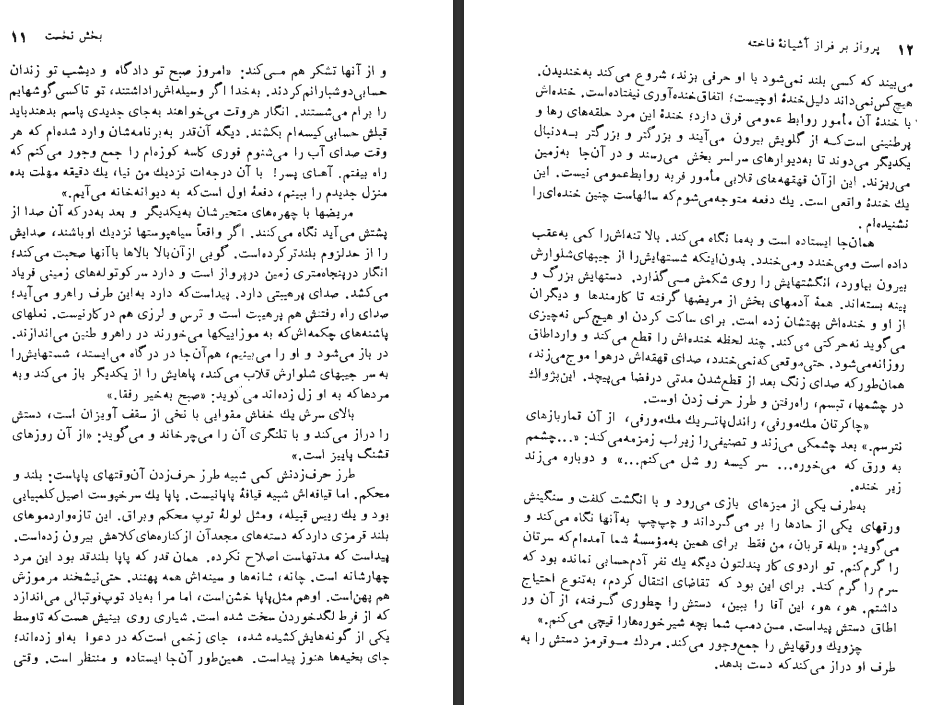 بخش نخست ۱۱
و از آنها تشکر هم می‌کند: «امروز صبح تو دادگاه و دیشب تو زندان
حسابی دوشبارانم کردند. به‌خدا اگر وسیله‌اش راداشتند، تو تاکسی گوشهایم
را برام می‌شستند. انگار هروقت می‌خواهند به‌جای جدیدی پاسم بدهند باید
قبلش حسابی کیسه‌ام بکشند. دیگه آن‌قدر به‌برنامه‌شان وارد شده‌ام که هر
وقت صدای آب را می‌شنوم فوری کاسه کوزه‌ام را جمع وجور می‌کنم که
راه بیفتم. آهای پسر! با آن درجه‌ات نزدیك من نیا، یك دقیقه مهلت بده
منزل جدیدم را ببینم، دفعهٔ اول است که به دیوانه‌خانه می‌آیم.»
مریضها با چهره‌های متحیرشان به‌یکدیگر و بعد به‌درکه آن صدا از
پشتش می‌آید نگاه می‌کنند. اگر واقعاً سیاهپوستها نزدیك اوباشند، صدایش
را از حدلزوم بلندتر کرده‌است. گویی از آن‌بالا بالاها باآنها صحبت می‌کند؛
انگار درپنجاه‌متری زمین درپرواز است و دارد سر کوتوله‌های زمینی فریاد
می‌کشد. صدای پرهیبتی دارد. پیداست‌که دارد به‌این طرف راهرو می‌آید؛
صدای راه رفتنش هم پرهیبت است و ترس و لرزی هم درکارنیست. نعلهای
پاشنه‌های چکمه‌اش‌که به موزاییکها می‌خورند در راهرو طنین می‌اندازند.
در باز می‌شود و او را می‌بینیم، هم‌آن‌جا در درگاه می‌ایستد، شستهایش‌را
به سر جیبهای شلوارش قلاب می‌کند، پاهایش را از یکدیگر باز می‌کند وبه
مردهاکه به او زل زده‌اند می‌گوید: «صبح به‌خیر رفقا.»
بالای سرش یك خفاش مقوایی با نخی از سقف آویزان است، دستش
را دراز می‌کند و با تلنگری آن را می‌چرخاند و می‌گوید: «از آن روزهای
قشنگ پاییز است.»
طرز حرف‌زدنش کمی شبیه طرز حرف‌زدن آن‌وقتهای پاپاست: بلند و
محکم. اما قیافه‌اش شبیه قیافهٔ پاپانیست. پاپا یك سرخپوست اصیل کلمبیایی
بود و یك رییس قبیله، ومثل لولهٔ توپ محکم وبراق. این تازه‌واردموهای
بلند قرمزی داردکه دسته‌های مجعدآن ازکناره‌های کلاهش بیرون زده‌است.
پیداست که مدتهاست اصلاح نکرده. همان قدر که پاپا بلندقد بود این مرد
چهارشانه است. چانه، شانه‌ها و سینه‌اش همه پهنند. حتی‌نیشخند مرموزش
هم پهن‌است. اوهم مثل‌پاپا خشن‌است، اما مرا به‌یاد توپ‌فوتبالی می‌اندازد
که از فرط لگدخوردن سخت شده است. شیاری روی بینیش هست‌که تاوسط
یکی از گونه‌هایش‌کشیده شده، جای زخمی است‌که در دعوا به‌او زده‌اند؛
جای بخیه‌ها هنوز پیداست. همین‌طور آن‌جا ایستاده و منتظر است. وقتی
۱۲ پرواز بر فراز آشیانهٔ فاخته
می‌بیند که کسی بلند نمی‌شود با او حرفی بزند، شروع می‌کند به‌خندیدن.
هیچ‌کس‌نمی‌داند دلیل‌خندهٔ اوچیست؛ اتفاق‌خنده‌آوری نیفتاده‌است. خنده‌اش
با خندهٔ آن مأمور روابط عمومی فرق دارد؛ خندهٔ این مرد حلقه‌های رها و
پرطنینی است‌کـه از گلویش بیرون می‌آیند و بزرگتر و بزرگتر به‌دنبال
یکدیگر می‌دوند تا به‌دیوارهای سراسر بخش می‌رسند و در آن‌جا به‌زمین
می‌ریزند. این ازآن قهقهه‌های قلابی مأمور فربه روابط‌عمومی نیست. این
یك خندهٔ واقعی است. یك دفعه متوجه‌می‌شوم‌که سالهاست چنین خنده‌ای‌را
نشنیده‌ام.
همان‌جا ایستاده است و به‌ما نگاه می‌کند. بالا تنه‌اش‌را کمی به‌عقب
داده است ومی‌خندد ومی‌خندد. بدون‌اینکه شستهایش‌را از جیبهای‌شلوارش
بیرون بیاورد، انگشتهایش را روی شکمش مـی‌گذارد. دستهایش بزرگ و
پینه بسته‌اند. همهٔ آدمهای بخش از مریضها گرفته تا کارمندها و دیگران
از او و خنده‌اش بهتشان زده است. برای ساکت کردن او هیچ‌کس نه‌چیزی
می‌گوید نه‌حرکتی می‌کند. چند لحظه خنده‌اش را قطع می‌کند و وارداطاق
روزانه‌می‌شود. حتی‌موقعی‌که‌نمی‌خندد، صدای قهقه‌اش درهوا موج‌می‌زند،
همان‌طورکه صدای زنگ بعد از قطع‌شدن مدتی درفضا می‌پیچد. این‌پژواك
در چشمها، تبسم، راه‌رفتن و طرز حرف زدن اوست.
«چاکرتان مك‌مورفی، راندل‌پاتـریك مك‌مورفی، از آن قماربازهای
نترسم.» بعد چشمکی می‌زند و تصنیفی‌را زیرلب زمزمه‌می‌کند: «...چشمم
به ورق که می‌خوره... سر کیسه رو شل می‌کنم...» و دوباره می‌زند
زیر خنده.
به‌طرف یکی از میزهای بازی می‌رود و با انگشت کلفت و سنگینش
ورقهای یکی از حادها را بر می‌گرداند و چپ‌چپ به‌آنها نگاه می‌کند و
می‌گوید: «بله قربان، من فقط برای همین به‌مؤسسهٔ شما آمده‌ام‌که سرتان
را گرم‌کنم. تو اردوی کار پندلتون دیگه یك نفر آدم‌حسابی نمانده بود که
سرم را گرم کند. برای این بود که تقاضای انتقال کردم، به‌تنوع احتیاج
داشتم. هو، هو، این آقا را ببین، دستش را چطوری گـرفته، از آن ور
اطاق دستش پیداست. مـن دمب شما بچه شیرخوره‌هارا قیچی می‌کنم.»
چزویك ورقهایش را جمع‌وجور می‌کند. مردك مـوقرمز دستش را به
طرف او دراز می‌کندکه دست بدهد.